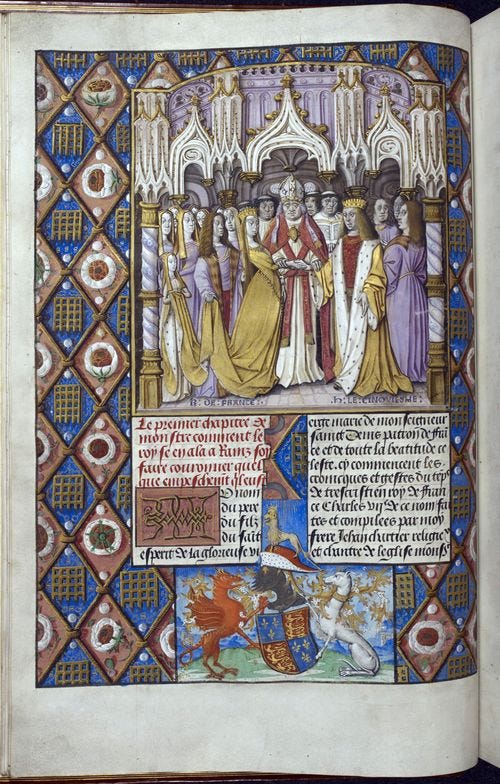 R: DE: FRANCE:
H: LE: CINQVIESME:
Le premier chapitre de
monstre comment le
roy se en ala a Rains soy
faire couronner
Ou nom
du pere
du filz
du saīt
esperit de la glorieuse vi
erge marie de monseigneur
saint Denis patron de frā
ce et de toute la beatitude ce
lestre. cy commencent les
cronicques et gestes du tēps
de trescrestien roy de fran
ce Charles vij de ce nom fai
tes et compilees par moy
frere Jehan chartier religie
et chantre de leglise monsr